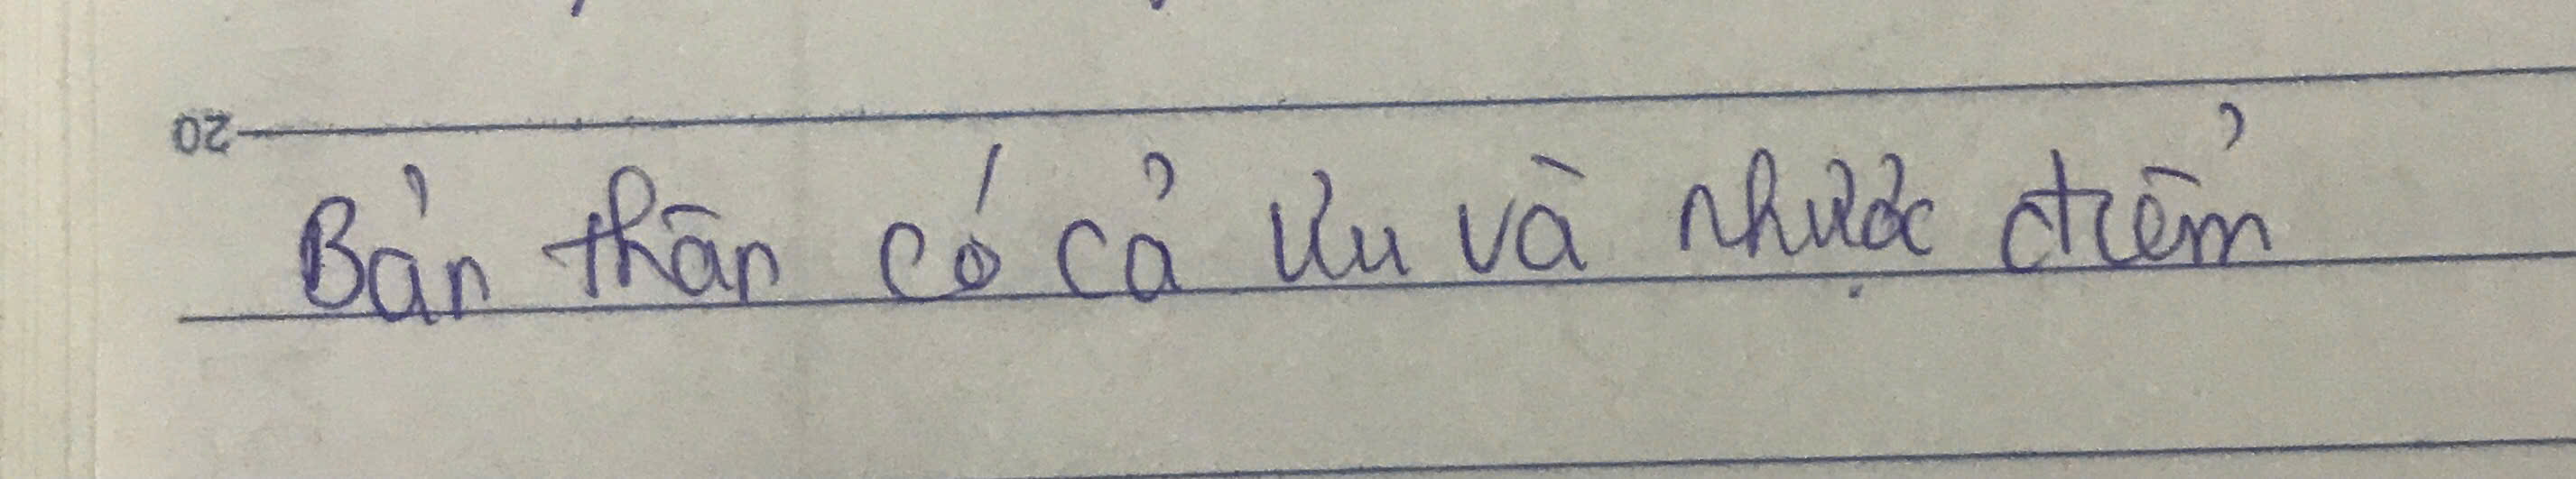 20
Bản thân có cả ưu và nhược điểm